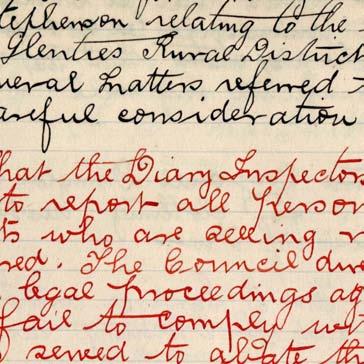 tephenson relating to the
Glenties Rural District
veral matters referred
areful consideration
hat the Diary Inspectors
to report all Person
ts who are selling
red. The Council dire
legal proceedings ag
fail to comply wi
served to abate th